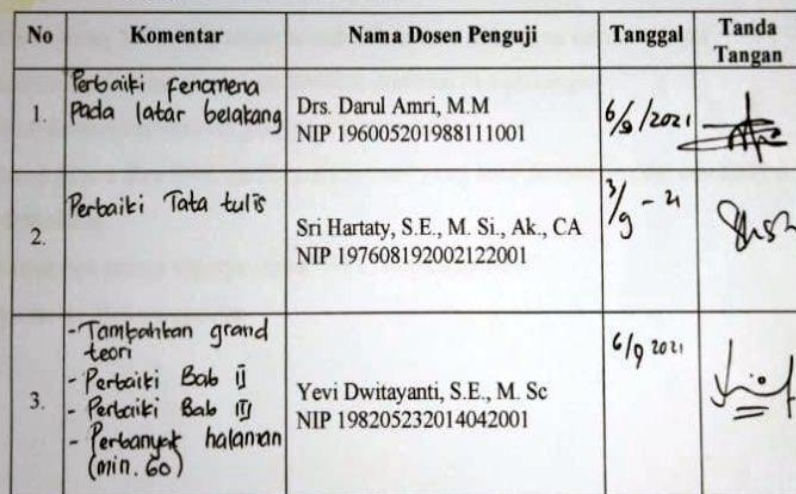 No Komentar Nama Dosen Penguji Tanggal Tanda Tangan
1.
Perbaiki fenomena
pada latar belakang
Drs. Darul Amri, M.M
NIP 196005201988111001
6/9/2021
2.
Perbaiki Tata tulis
Sri Hartaty, S.E., M. Si., Ak., CA
NIP 197608192002122001
3/9 - 21
3.
- Tambahkan grand
teori
- Perbaiki Bab II
- Perbaiki Bab III
- Perbanyak halaman
(min. 60)
Yevi Dwitayanti, S.E., M. Sc
NIP 198205232014042001
6/9 2021